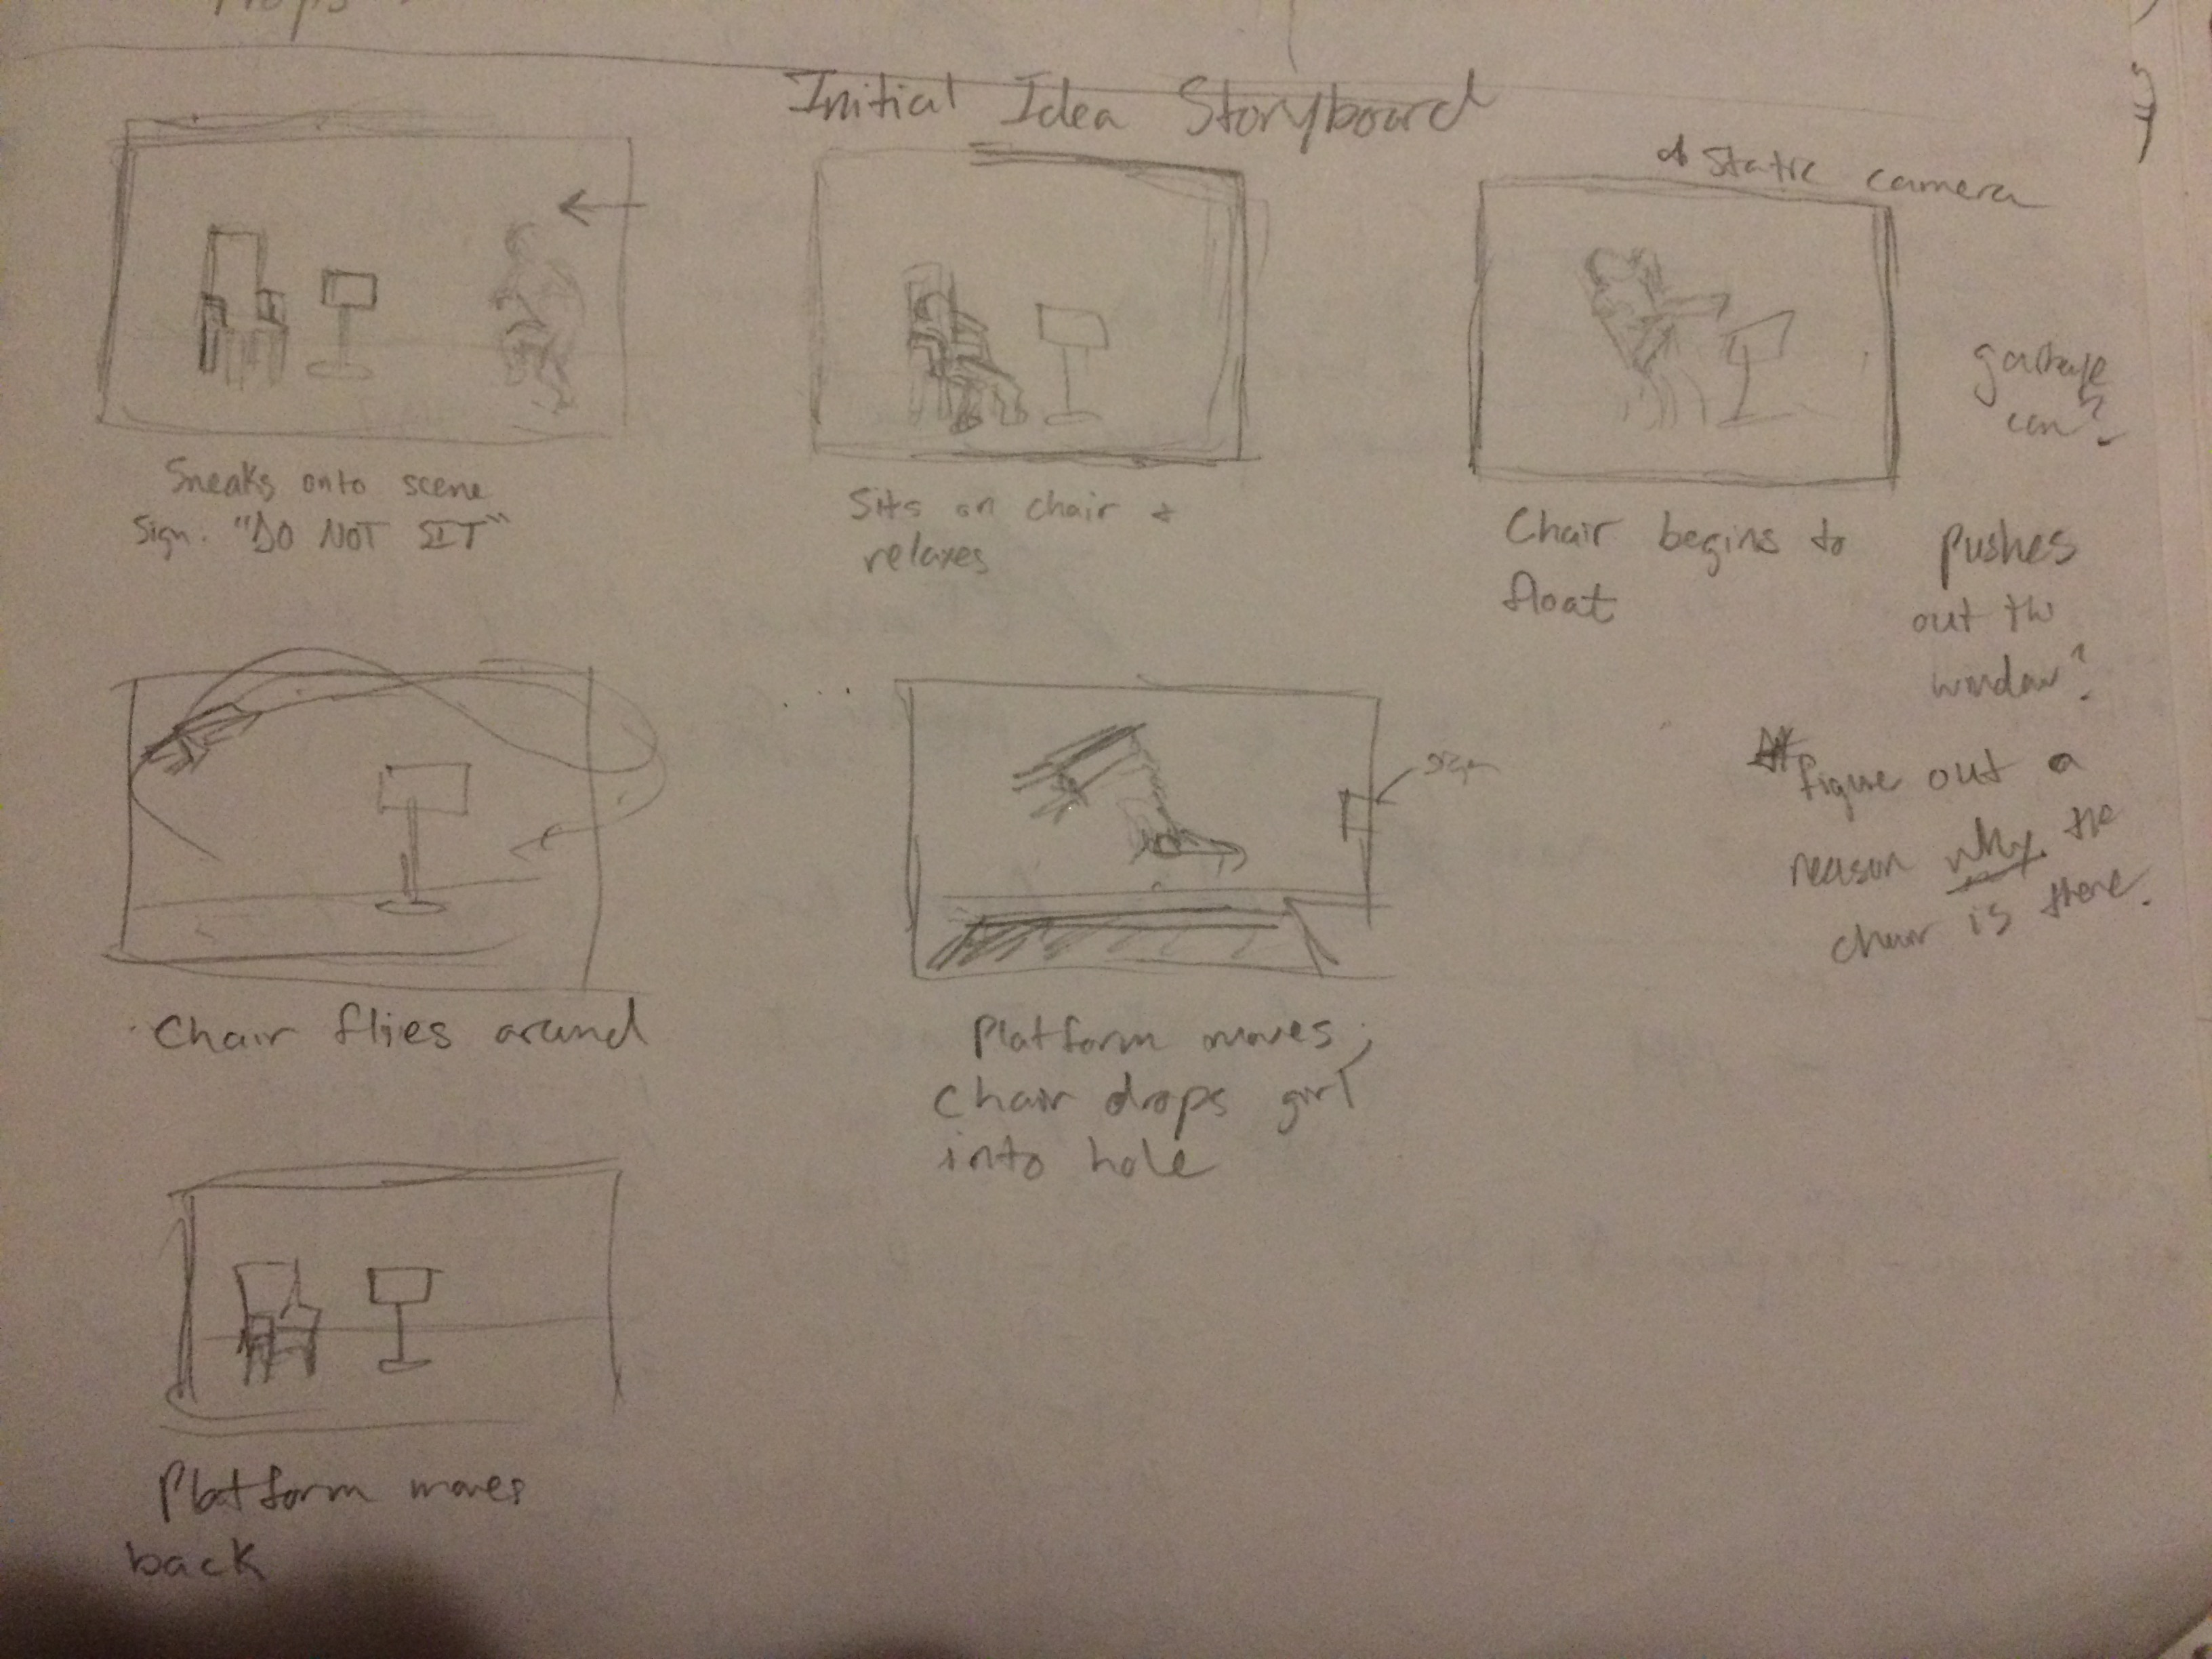 Props
Initial Idea Storyboard
* Static camera
Sneaks onto scene
Sign: "DO NOT SIT"
Sits on chair +
relaxes
Chair begins to
float
garbage
can?
pushes
out the
window?
* figure out a
reason why the
chair is there.
sign
Chair flies around
Platform moves,
chair drops girl
into hole
Platform moves
back